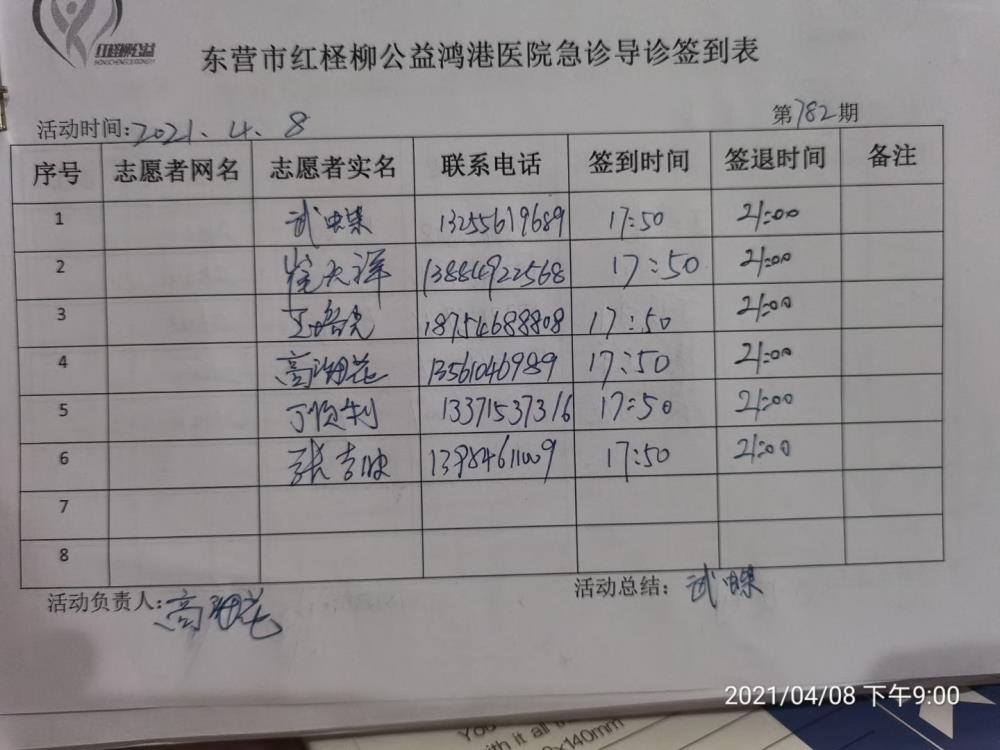 红柽柳公益
东营市红柽柳公益鸿港医院急诊导诊签到表
活动时间:2021.4.8 第782期
序号 志愿者网名 志愿者实名 联系电话 签到时间 签退时间 备注
1 武 13255619689 17:50 21:00
2 崔天祥 13884922568 17:50 21:00
3 王 18754688808 17:50 21:00
4 高 花 13561046989 17:50 21:00
5 丁顺利 13371537316 17:50 21:00
6 张吉 17:50 21:00
7
8
活动负责人:高 花 活动总结:武
2021/04/08 下午9:00
You
with it all
x140mm